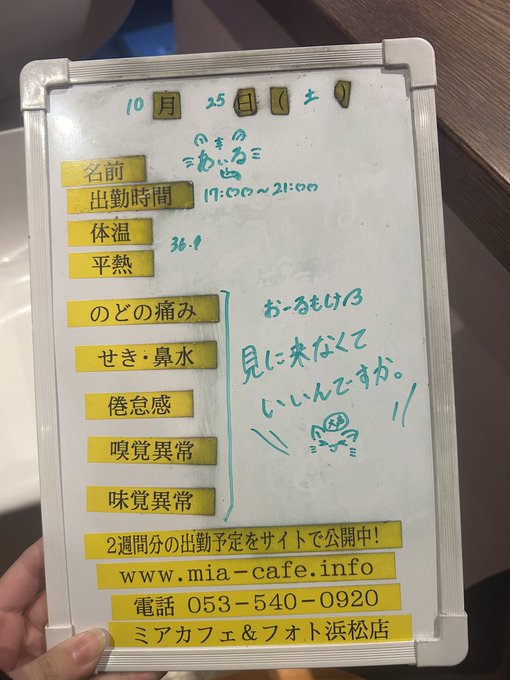 10月 25日(土)
名前 あぃる
出勤時間 17:00〜21:00
体温 36.1
平熱
のどの痛み
せき・鼻水
倦怠感
嗅覚異常
味覚異常
おーるもけ
見に来なくて
いいんですか。
2週間分の出勤予定をサイトで公開中!
www.mia-cafe.info
電話 053-540-0920
ミアカフェ&フォト浜松店